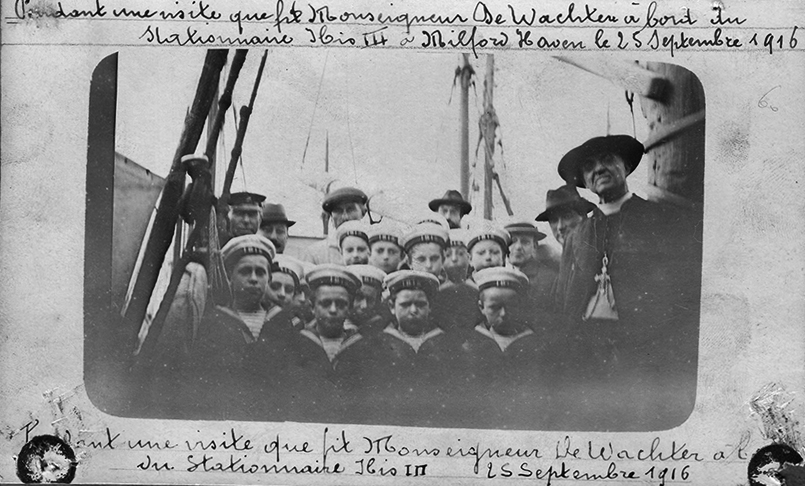 Pendant une visite que fit Monseigneur De Wachter à bord du
Stationnaire Ibis III à Milford Haven le 25 Septembre 1916
60
IBIS
une visite que fit Monseigneur De Wachter à
du Stationnaire Ibis III 25 Septembre 1916